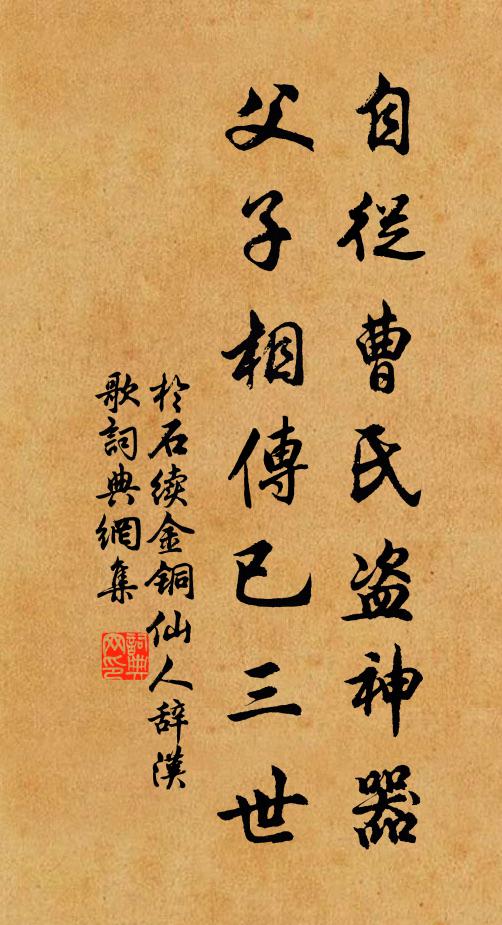 自從曹氏盗神器
父子相傳已三世
於石续金铜仙人辞漢
歌詞典網集
詞典
网印